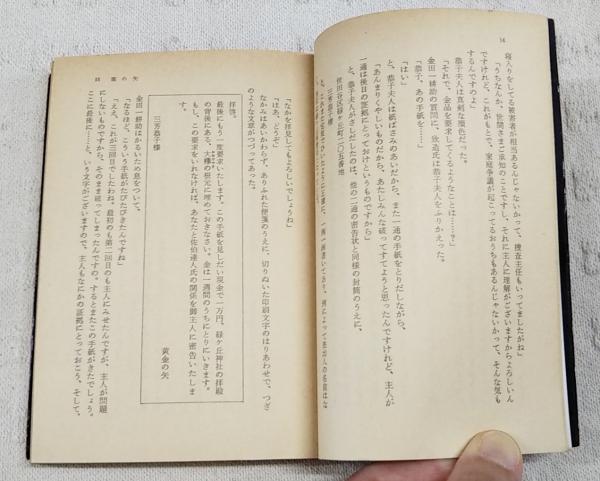 14
寝入りをしてる被害者が相当あるんじゃないかって、捜査主任もいってましたがね」
「うちなんか、世間さまご承知のことですし、それに主人に理解がございますからよろしいん
ですけれど、これがもとで、家庭争議が起こってるおうちもあるんじゃないかって、そんな気も
するんですのよ」
恭子夫人は真剣な顔色だった。
「それで、金品を要求してくるようなことは……？」
金田一耕助の質問に、欣造氏は恭子夫人をふりかえった。
「恭子、あの手紙を……」
「はい」
と、恭子夫人は紙ばさみのあいだから、また一通の手紙をとりだしながら、
「あんまりくやしいものだから、あたしみんな破ってすてようと思ったんですけれど、主人が
一通は後日の証拠にとっておけというものですから」
と、恭子夫人がさしだしたのは、他の二通の密告状と同様の封筒のうえに、
世田谷区緑ケ丘町二〇五番地
三芳恭子様
15 黄金の矢
「なかを拝見してもよろしいでしょうね」
「はあ、どうぞ」
なかみはあいかわらず、ありふれた便箋のうえに、切りぬいた印刷文字のはりあわせで、つぎ
のような文章がつづってあった。
拝啓。
最後にもう一度要求いたします。この手紙を見しだい現金で一万円、緑ケ丘神社の拝殿
の背後にある、大欅の根元に埋めておきなさい。金は一週間のうちにとりにいきます。
もし、この要求をいれなければ、あなたと佐伯達人氏の関係を御主人に密告いたしま
す。
黄金の矢
三芳恭子様
金田一耕助はかるいため息をついて、
「なるほど、こういう手紙がたびたびきたんですね」
「ええ、これが三回目でしたわね。最初のも第二回目のも主人にみせたんですが、主人が問題
にしないものですから、そのまま破ってしまったんですの。するとまたこの手紙がきたでしょう。
ここに最後に……、という文字がございますので、主人もなにかの証拠にとっておこう。そして、